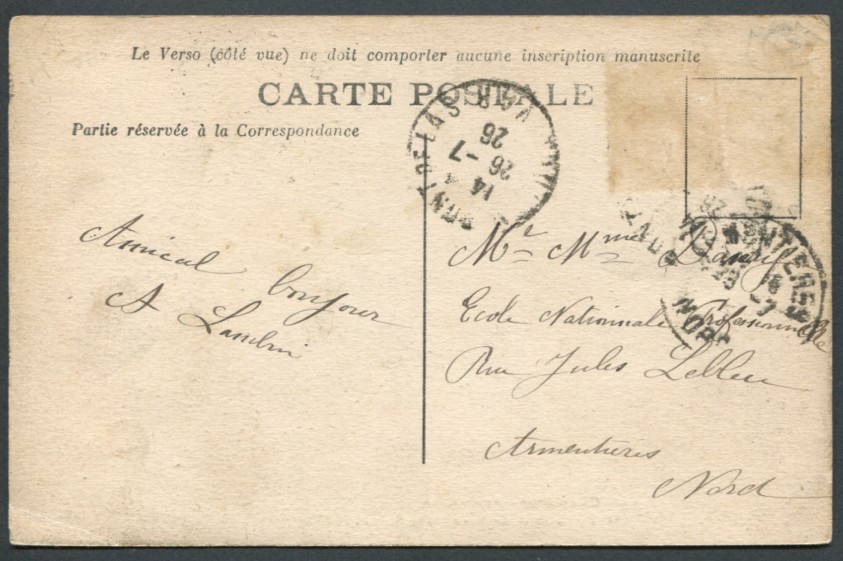 Le Verso (côté vue) ne doit comporter aucune inscription manuscrite
CARTE POSTALE
Partie réservée à la Correspondance
PONT DE LAS VAR
14
26 -7
26
ARMENTIERES
NORD
Amical bonjour
A Landrin
Mr Mme
Ecole Nationnale Professionnelle
Rue Jules Lebleu
Armentières
Nord